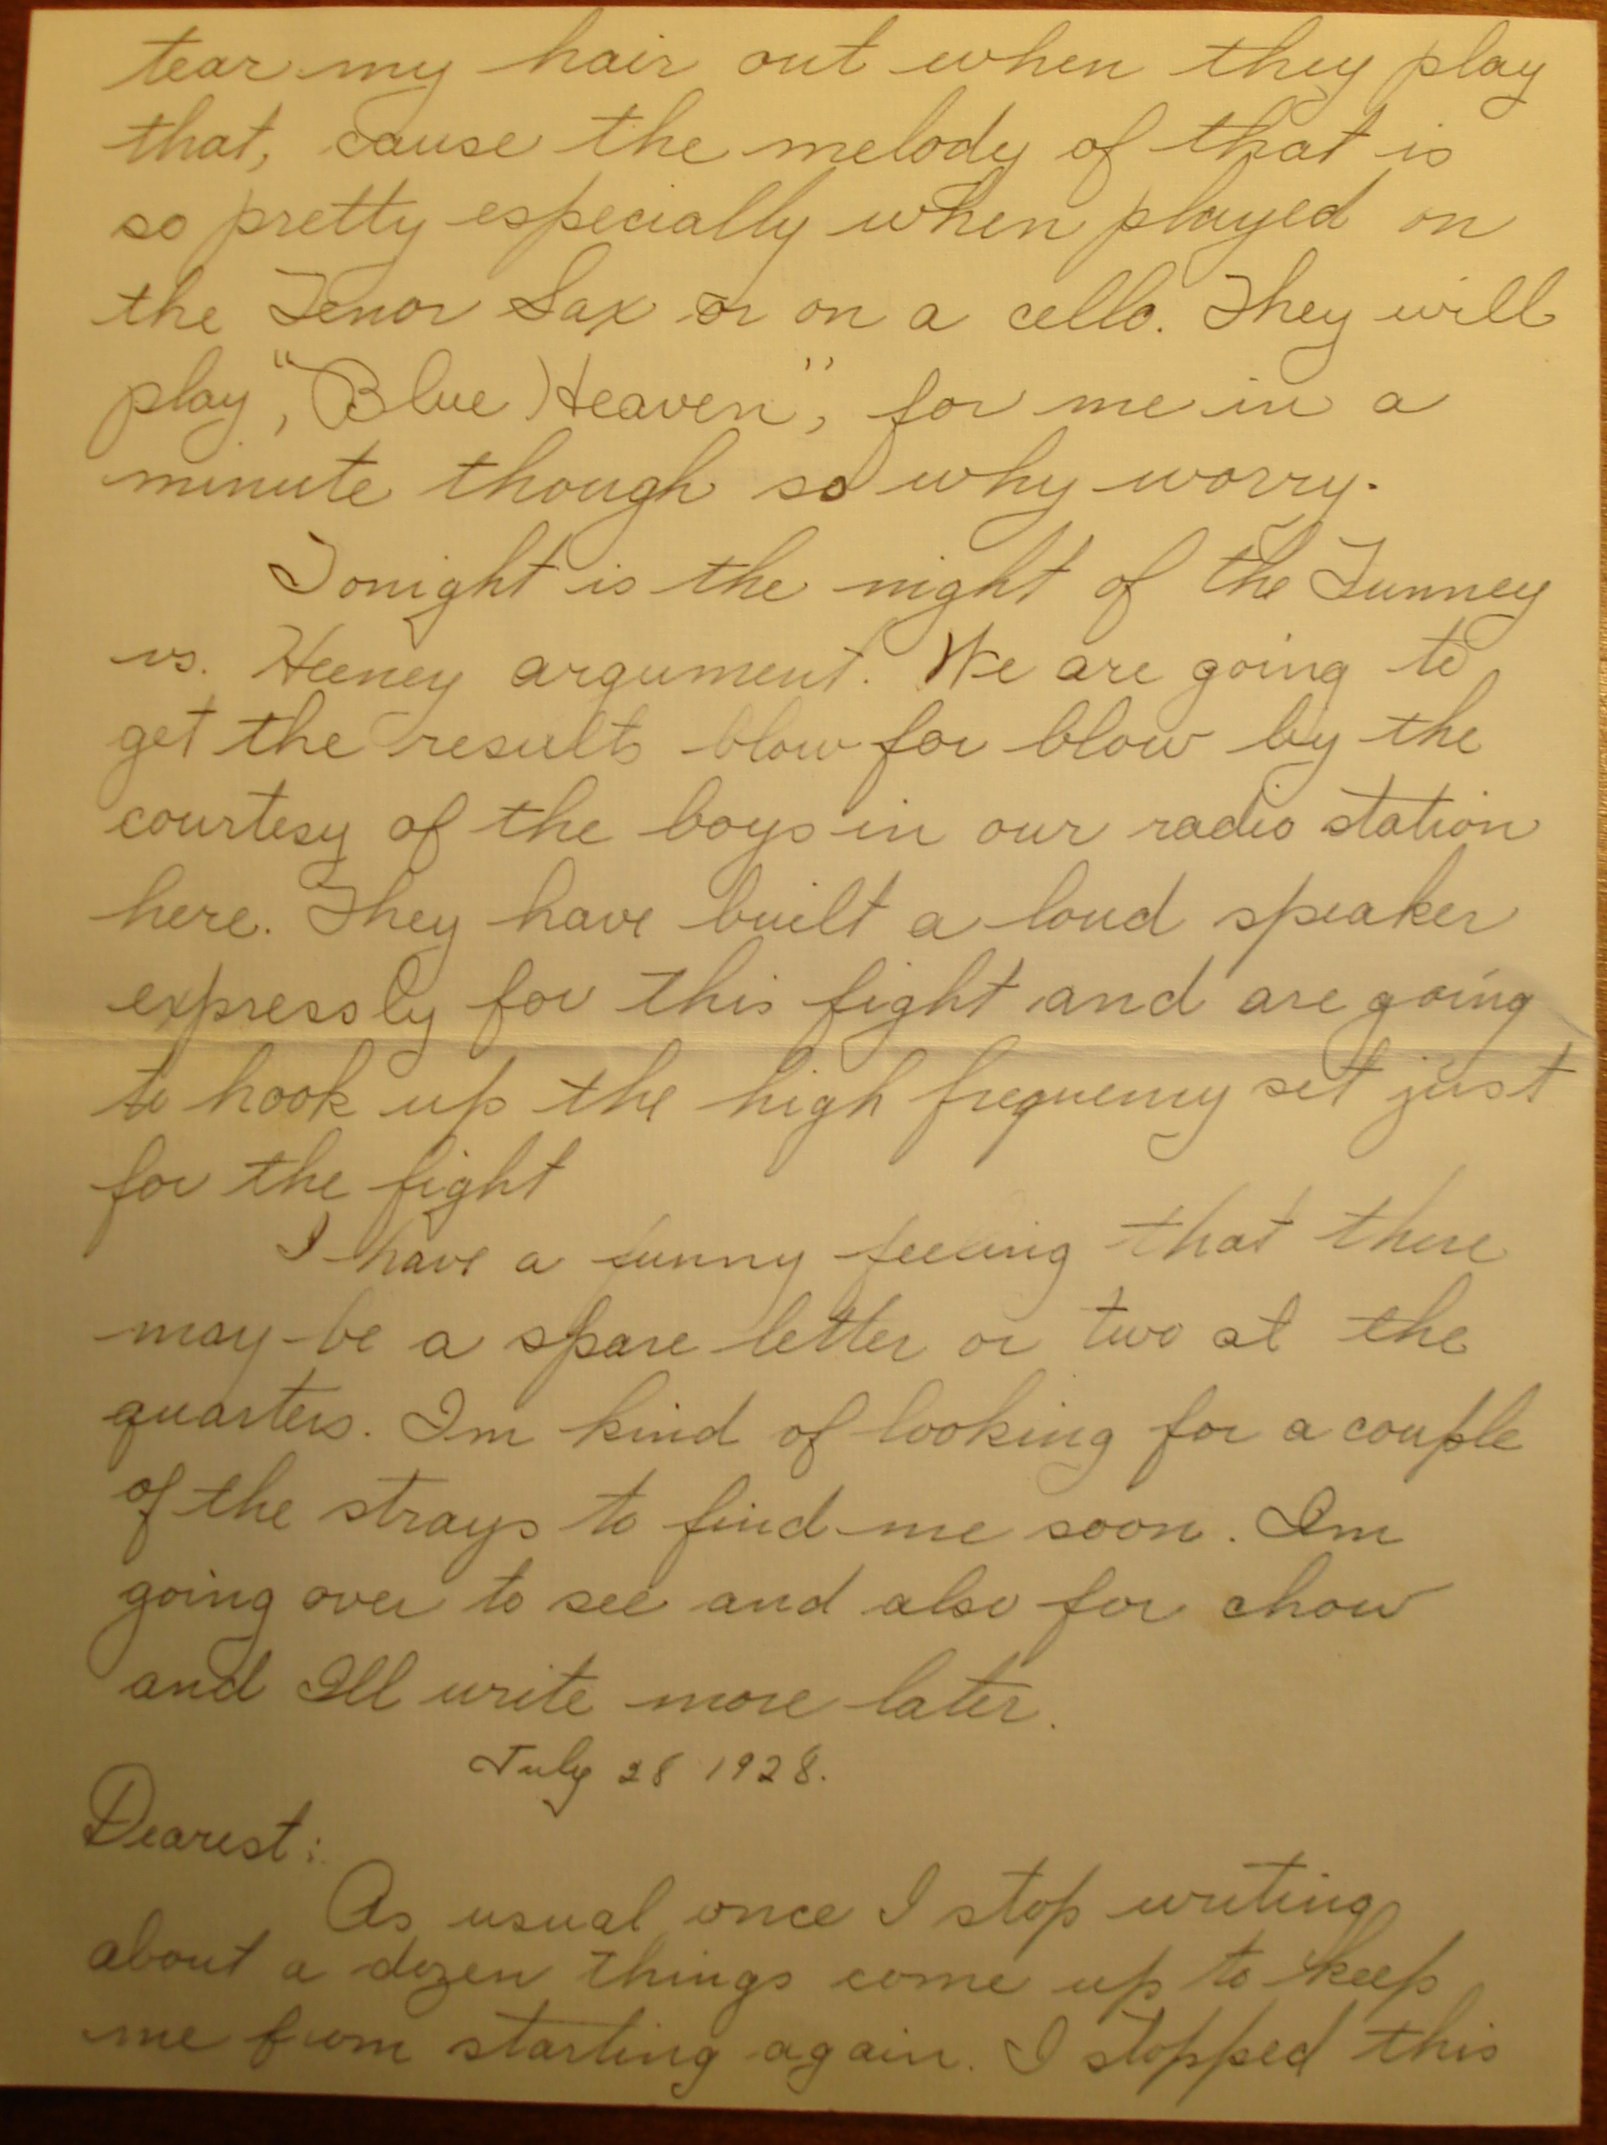 tear my hair out when they play
that, cause the melody of that is
so pretty especially when played on
the Tenor Sax or on a cello. They will
play, "Blue Heaven", for me in a
minute though so why worry.
Tonight is the night of the Tunney
vs. Heeney argument. We are going to
get the results blow for blow by the
courtesy of the boys in our radio station
here. They have built a loud speaker
expressly for this fight and are going
to hook up the high frequency set just
for the fight
I have a funny feeling that there
may be a spare letter or two at the
quarters. Im kind of looking for a couple
of the strays to find me soon. Im
going over to see and also for chow
and Ill write more later.
July 28 1928.
Dearest:
As usual once I stop writing
about a dozen things come up to keep
me from starting again. I stopped this